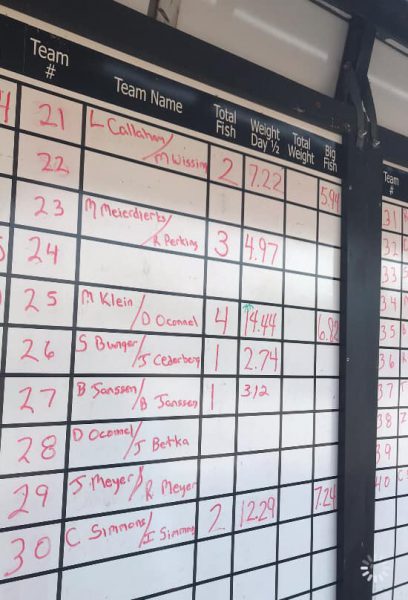 Team #
Team Name
Total Fish
Weight Day 1/2
Total Weight
Big Fish
21 L Callahan/ M Wissin 2 7.22 5.94
22
23 M Meierdierks/ R Perking 3 4.97
24
25 M Klein / D Oconnel 4 14.44 6.82
26 S Bunger/ J Cederberg 1 2.74
27 B Janssen/ B Janssen 1 3.12
28 D Oconnel/ J Betka
29 J Meyer/ R Meyer
30 C Simmons/ I Simmons 2 12.29 7.24
Team #
31
32
33
34
35
36
37
38
39
40